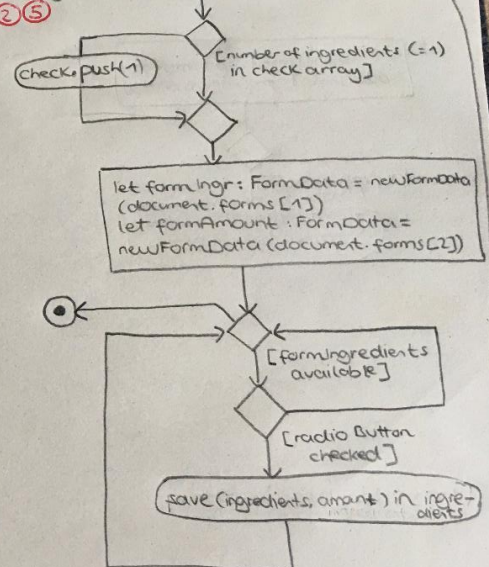 ② ⑤
[number of ingredients (=1)
in check array]
check.push(1)
let formIngr: FormData = newFormData
(document.forms[1])
let formAmount: FormData =
newFormData (document.forms[2])
[formingredients
available]
[radio Button
checked]
save (ingredients, amant) in ingre-
dients